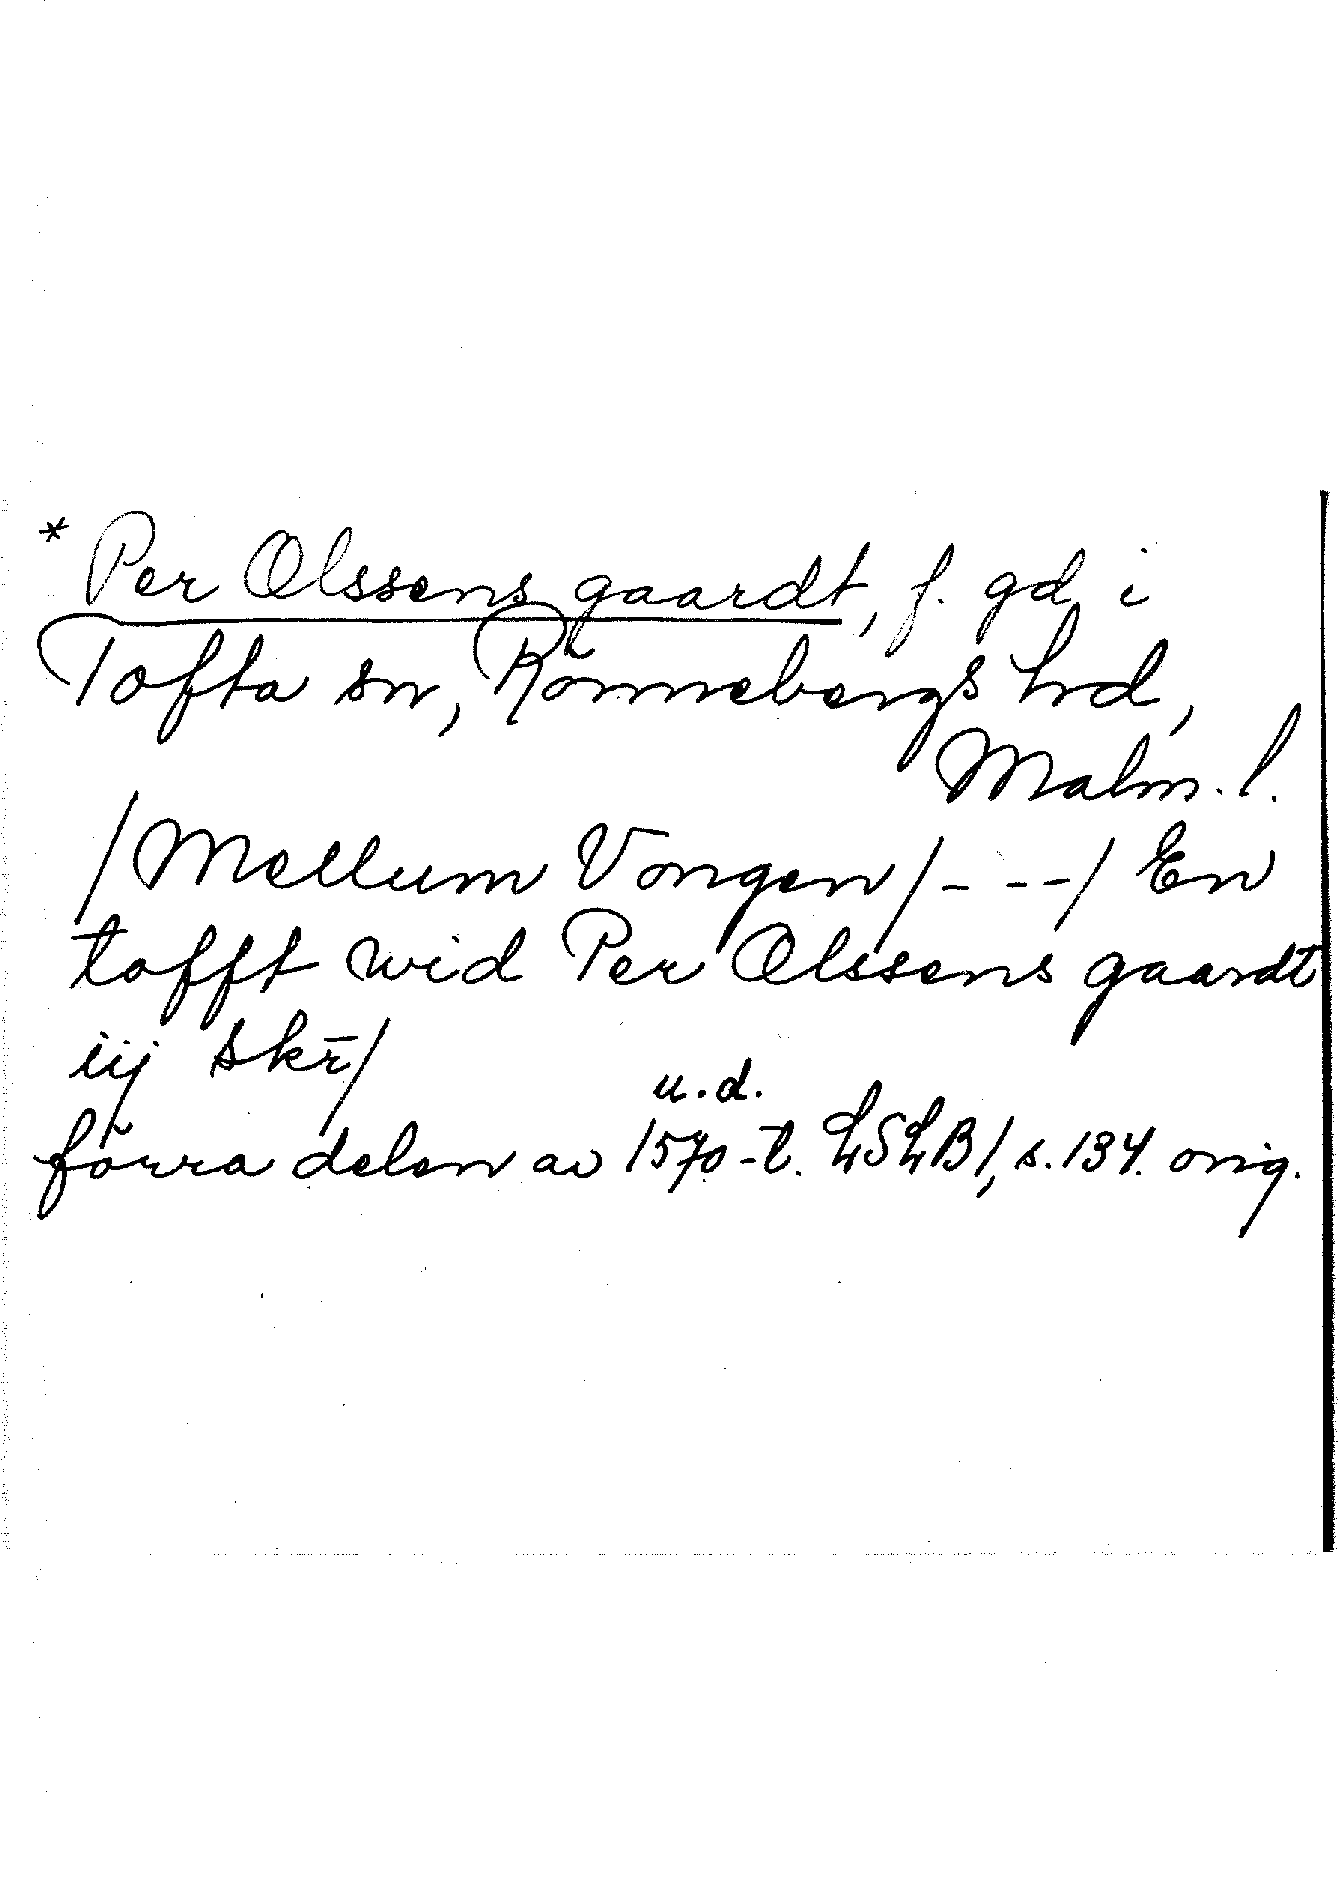 * Per Olssens gaardt, f. gd i
Tofta sn, Rönnebergs hrd,
Malm. l.
/Mellum Vongen/- - - -/ En
tofft wid Per Olssens gaardt
iij skr̄/
u.d.
förra delen av 1570-t. LSLB1, s. 134. orig.